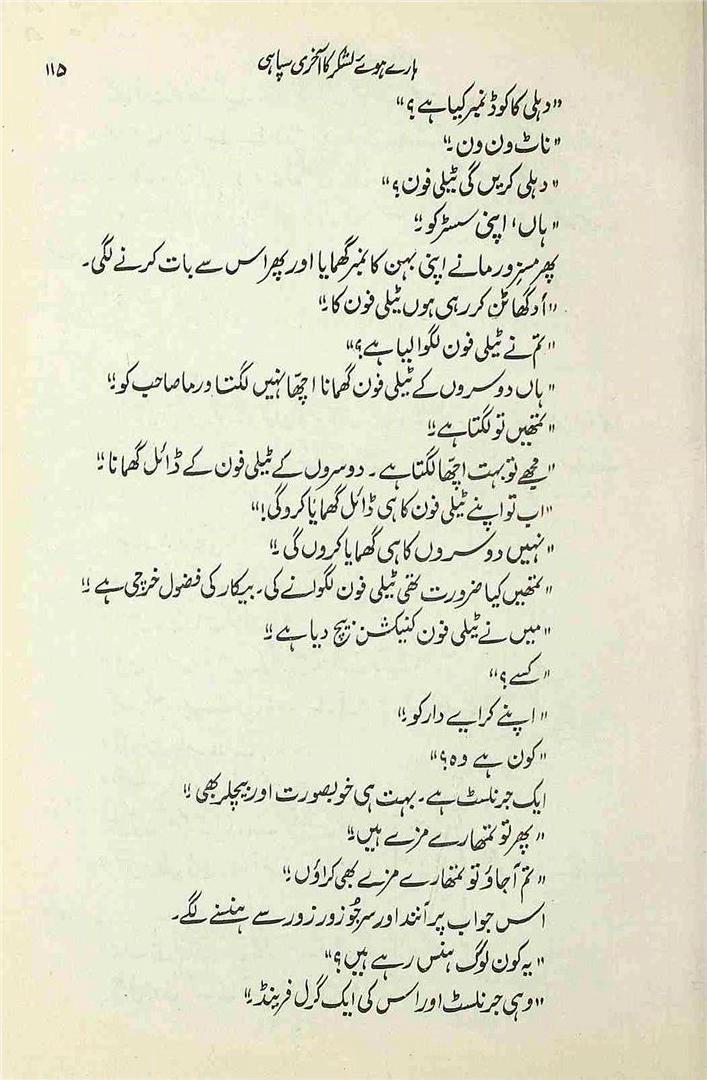 ہارے ہوئے لشکر کا آخری سپاہی
۱۱۵
"دہلی کا کوڈ نمبر کیا ہے؟"
"ناٹ ون ون۔"
"دہلی کریں گی ٹیلی فون؟"
"ہاں، اپنی سسٹر کو۔"
پھر مسز ورما نے اپنی بہن کا نمبر گھمایا اور پھر اس سے بات کرنے لگی۔
"اُدگھاٹن کر رہی ہوں ٹیلی فون کا۔"
"تم نے ٹیلی فون لگوا لیا ہے؟"
"ہاں دوسروں کے ٹیلی فون گھمانا اچھّا نہیں لگتا ورما صاحب کو۔"
"تمھیں تو لگتا ہے۔"
"مجھے تو بہت اچھّا لگتا ہے۔ دوسروں کے ٹیلی فون کے ڈائل گھمانا۔"
"اب تو اپنے ٹیلی فون کا ہی ڈائل گھمایا کرو گی!"
"نہیں دوسروں کا ہی گھمایا کروں گی۔"
"تمھیں کیا ضرورت تھی ٹیلی فون لگوانے کی۔ بیکار کی فضول خرچی ہے۔"
"میں نے ٹیلی فون کنیکشن بیچ دیا ہے۔"
"کسے؟"
"اپنے کرایے دار کو۔"
"کون ہے وہ؟"
ایک جرنلسٹ ہے۔ بہت ہی خوبصورت اور بیچلر بھی۔"
"پھر تو تمھارے مزے ہیں۔"
"تم آجاؤ تو تمھارے مزے بھی کراؤں۔"
اس جواب پر آنند اور سرجُو زور زور سے ہنسنے لگے۔
"یہ کون لوگ ہنس رہے ہیں؟"
"وہی جرنلسٹ اور اس کی ایک گرل فرینڈ۔"